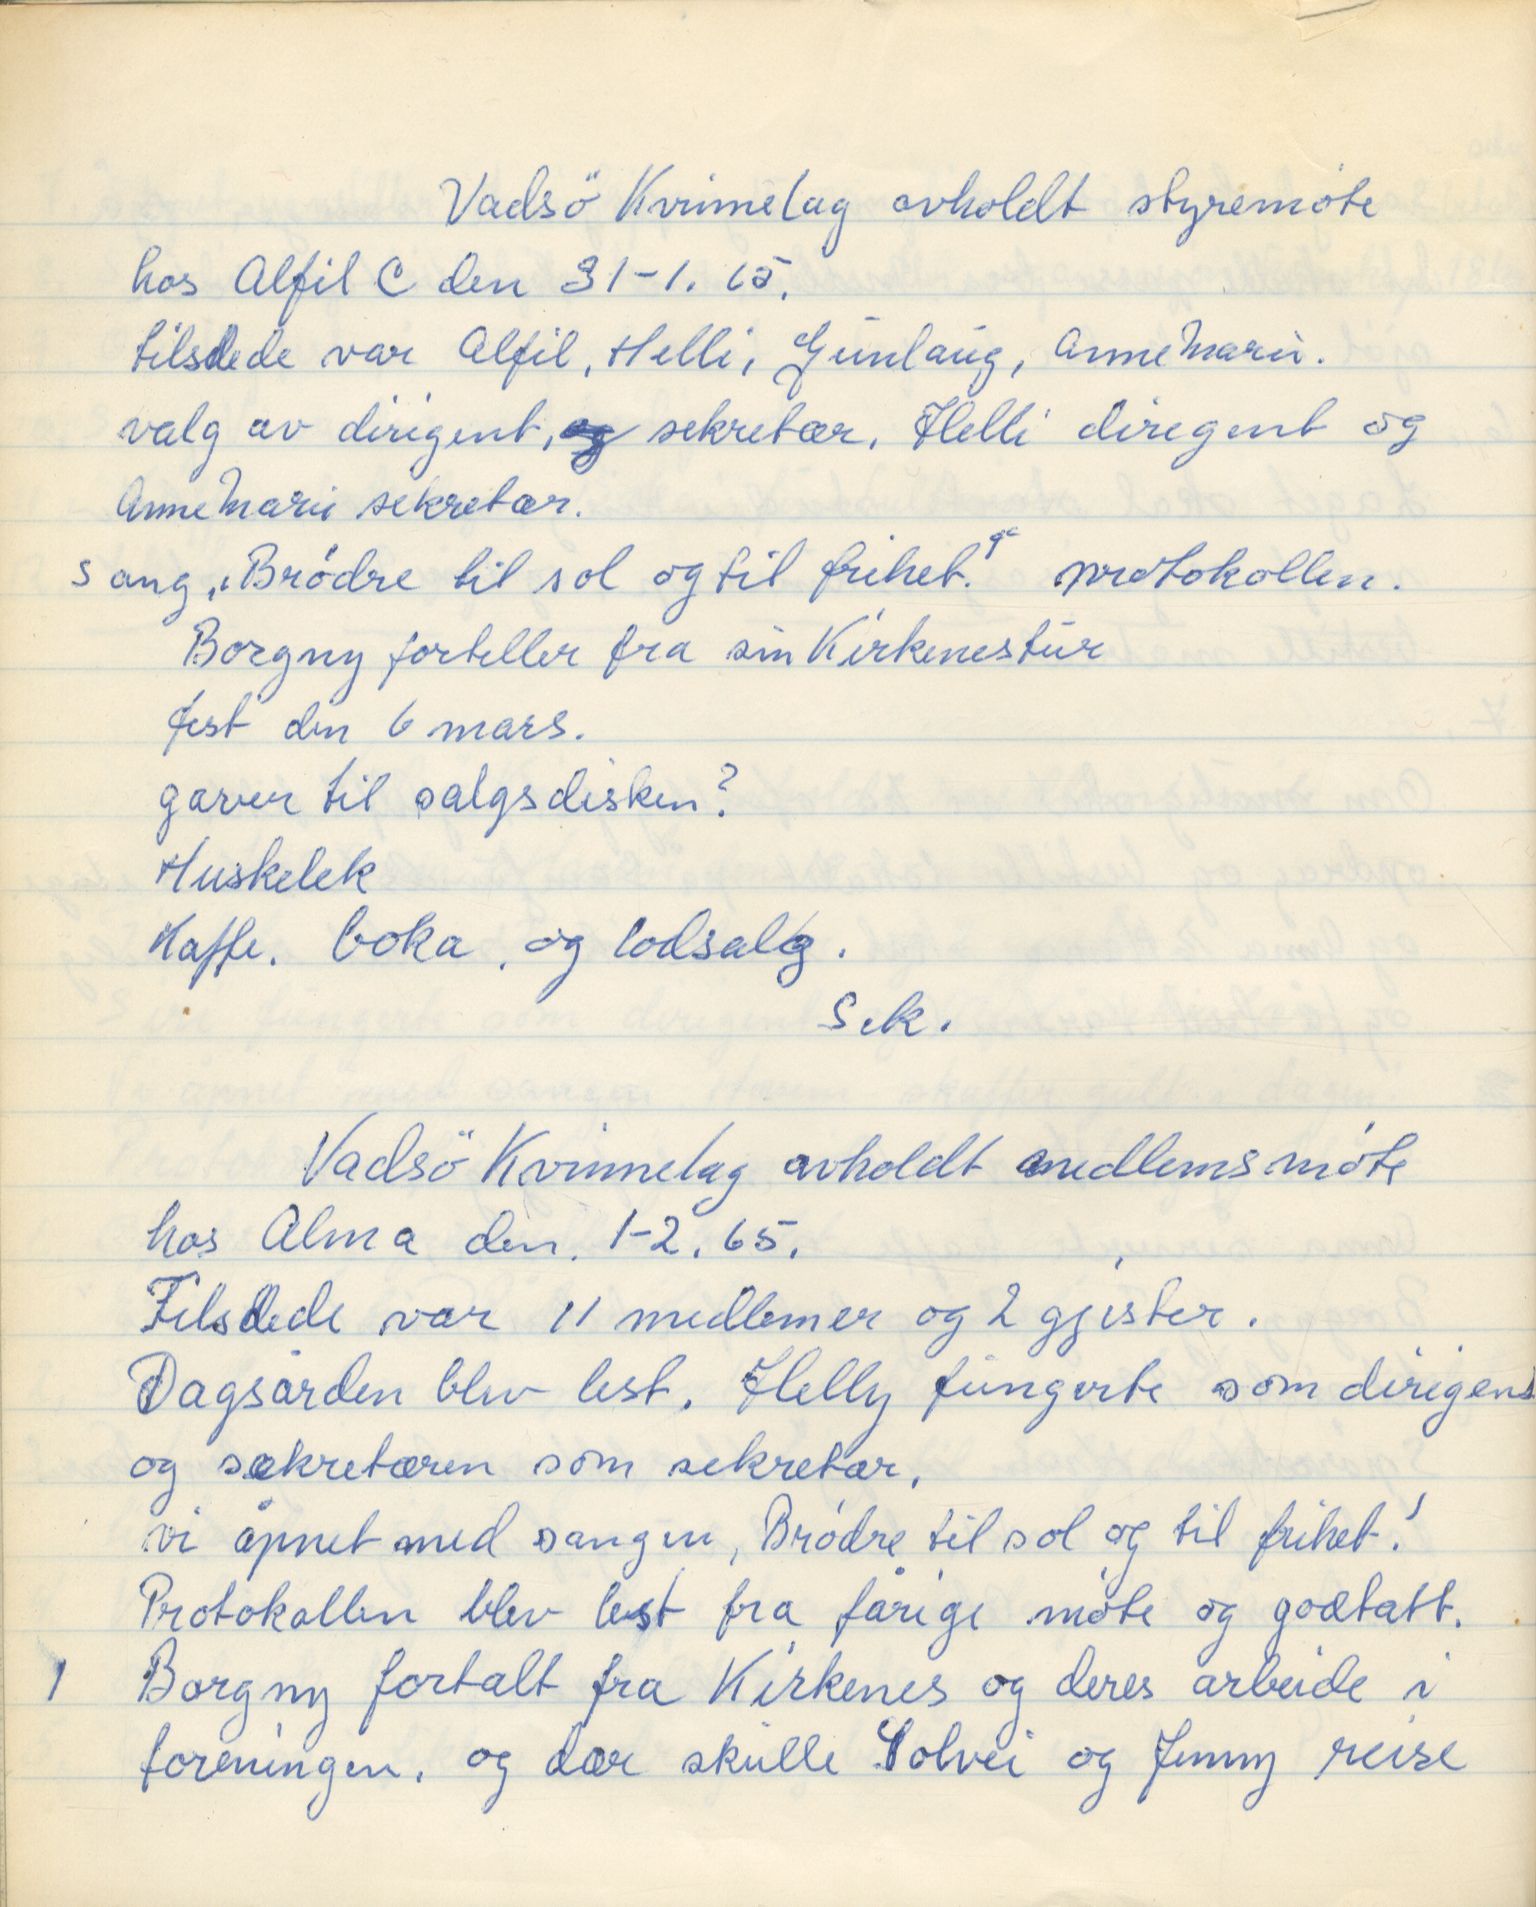 Vadsö Kvinnelag avholdt styremöte
hos Alfil C den 31-1. 65.
tilstede var Alfil, Helli, Gunlaug, AnneMarie.
valg av dirigent, sekretær. Helli diregent og
AnneMarie sekretær.
Sang „Brödre til sol og til frihet." protokollen.
Borgny forteller fra sin Kirkenestur
fest den 6 mars.
gaver til salgsdisken?
Huskelek
Kaffe. boka, og lodsalg.
Sek.
Vadsö Kvinnelag avholdt medlemsmöte
hos Alma den. 1-2. 65.
Tilstede var 11 medlemer og 2 gjester.
Dagsorden blev lest. Helly fungerte som dirigent
og sekretæren som sekretær.
vi åpnet med sangen, Brödre til sol og til frihet!
Protokollen blev lest fra forige möte og godtatt.
1 Borgny fortalt fra Kirkenes og deres arbeide i
foreningen. og der skulle Solvei og Jenny reise